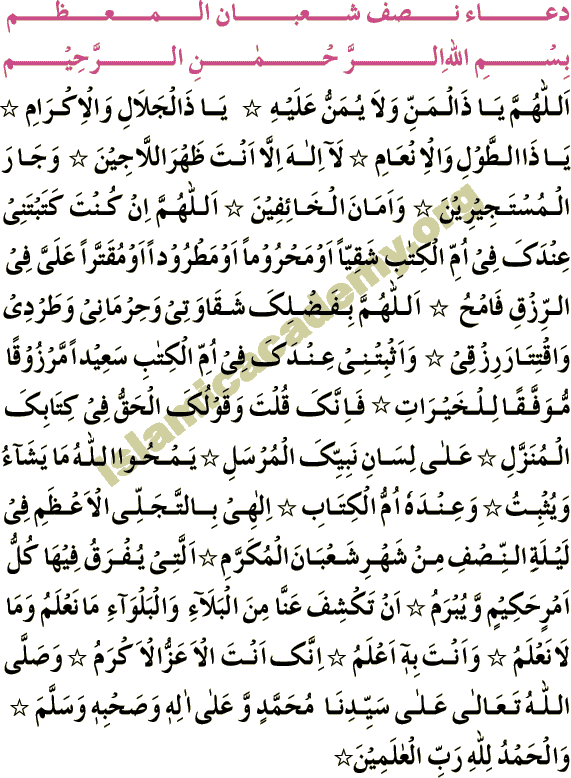 دعاء نصف شعبان المعظم
بِسْمِ اللهِ الرَّحْمٰنِ الرَّحِيْمِ
اَللّٰهُمَّ يَا ذَالْمَنِّ وَلَا يُمَنُّ عَلَيْهِ ☆ يَا ذَالْجَلَالِ وَالْاِكْرَامِ ☆
يَا ذَاالطَّوْلِ وَالْاِنْعَامِ ☆ لَآ اِلٰهَ اِلَّا اَنْتَ ظَهْرَ اللَّاجِيْنَ ☆ وَجَارَ
الْمُسْتَجِيْرِيْنَ ☆ وَاَمَانَ الْخَائِفِيْنَ ☆ اَللّٰهُمَّ اِنْ كُنْتَ كَتَبْتَنِىْ
عِنْدَكَ فِىْ اُمِّ الْكِتٰبِ شَقِيًّا اَوْ مَحْرُوْمًا اَوْ مَطْرُوْدًا اَوْ مُقَتَّرًا عَلَىَّ فِى
الرِّزْقِ فَامْحُ ☆ اَللّٰهُمَّ بِفَضْلِكَ شَقَاوَتِىْ وَحِرْمَانِىْ وَطَرْدِىْ
وَاقْتِتَارَ رِزْقِىْ ☆ وَاَثْبِتْنِىْ عِنْدَكَ فِىْ اُمِّ الْكِتٰبِ سَعِيْدًا مَّرْزُوْقًا
مُّوَفَّقًا لِلْخَيْرَاتِ ☆ فَاِنَّكَ قُلْتَ وَقَوْلُكَ الْحَقُّ فِىْ كِتَابِكَ
الْمُنَزَّلِ ☆ عَلٰى لِسَانِ نَبِيِّكَ الْمُرْسَلِ ☆ يَمْحُوا اللّٰهُ مَا يَشَآءُ
وَيُثْبِتُ ☆ وَعِنْدَهٗ اُمُّ الْكِتَابِ ☆ اِلٰهِىْ بِالتَّجَلِّى الْاَعْظَمِ فِىْ
لَيْلَةِ النِّصْفِ مِنْ شَهْرِ شَعْبَانَ الْمُكَرَّمِ ☆ اَلَّتِىْ يُفْرَقُ فِيْهَا كُلُّ
اَمْرٍ حَكِيْمٍ وَّيُبْرَمُ ☆ اَنْ تَكْشِفَ عَنَّا مِنَ الْبَلَآءِ وَالْبَلْوَآءِ مَا نَعْلَمُ وَمَا
لَا نَعْلَمُ ☆ وَاَنْتَ بِهٖٓ اَعْلَمُ ☆ اِنَّكَ اَنْتَ الْاَعَزُّ الْاَكْرَمُ ☆ وَصَلَّى
اللّٰهُ تَعَالٰى عَلٰى سَيِّدِنَا مُحَمَّدٍ وَّعَلٰى اٰلِهٖ وَصَحْبِهٖ وَسَلَّمَ ☆
وَالْحَمْدُ لِلّٰهِ رَبِّ الْعٰلَمِيْنَ☆
islamicacademy.org